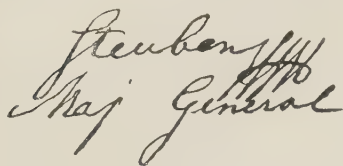 Steuben
Maj General